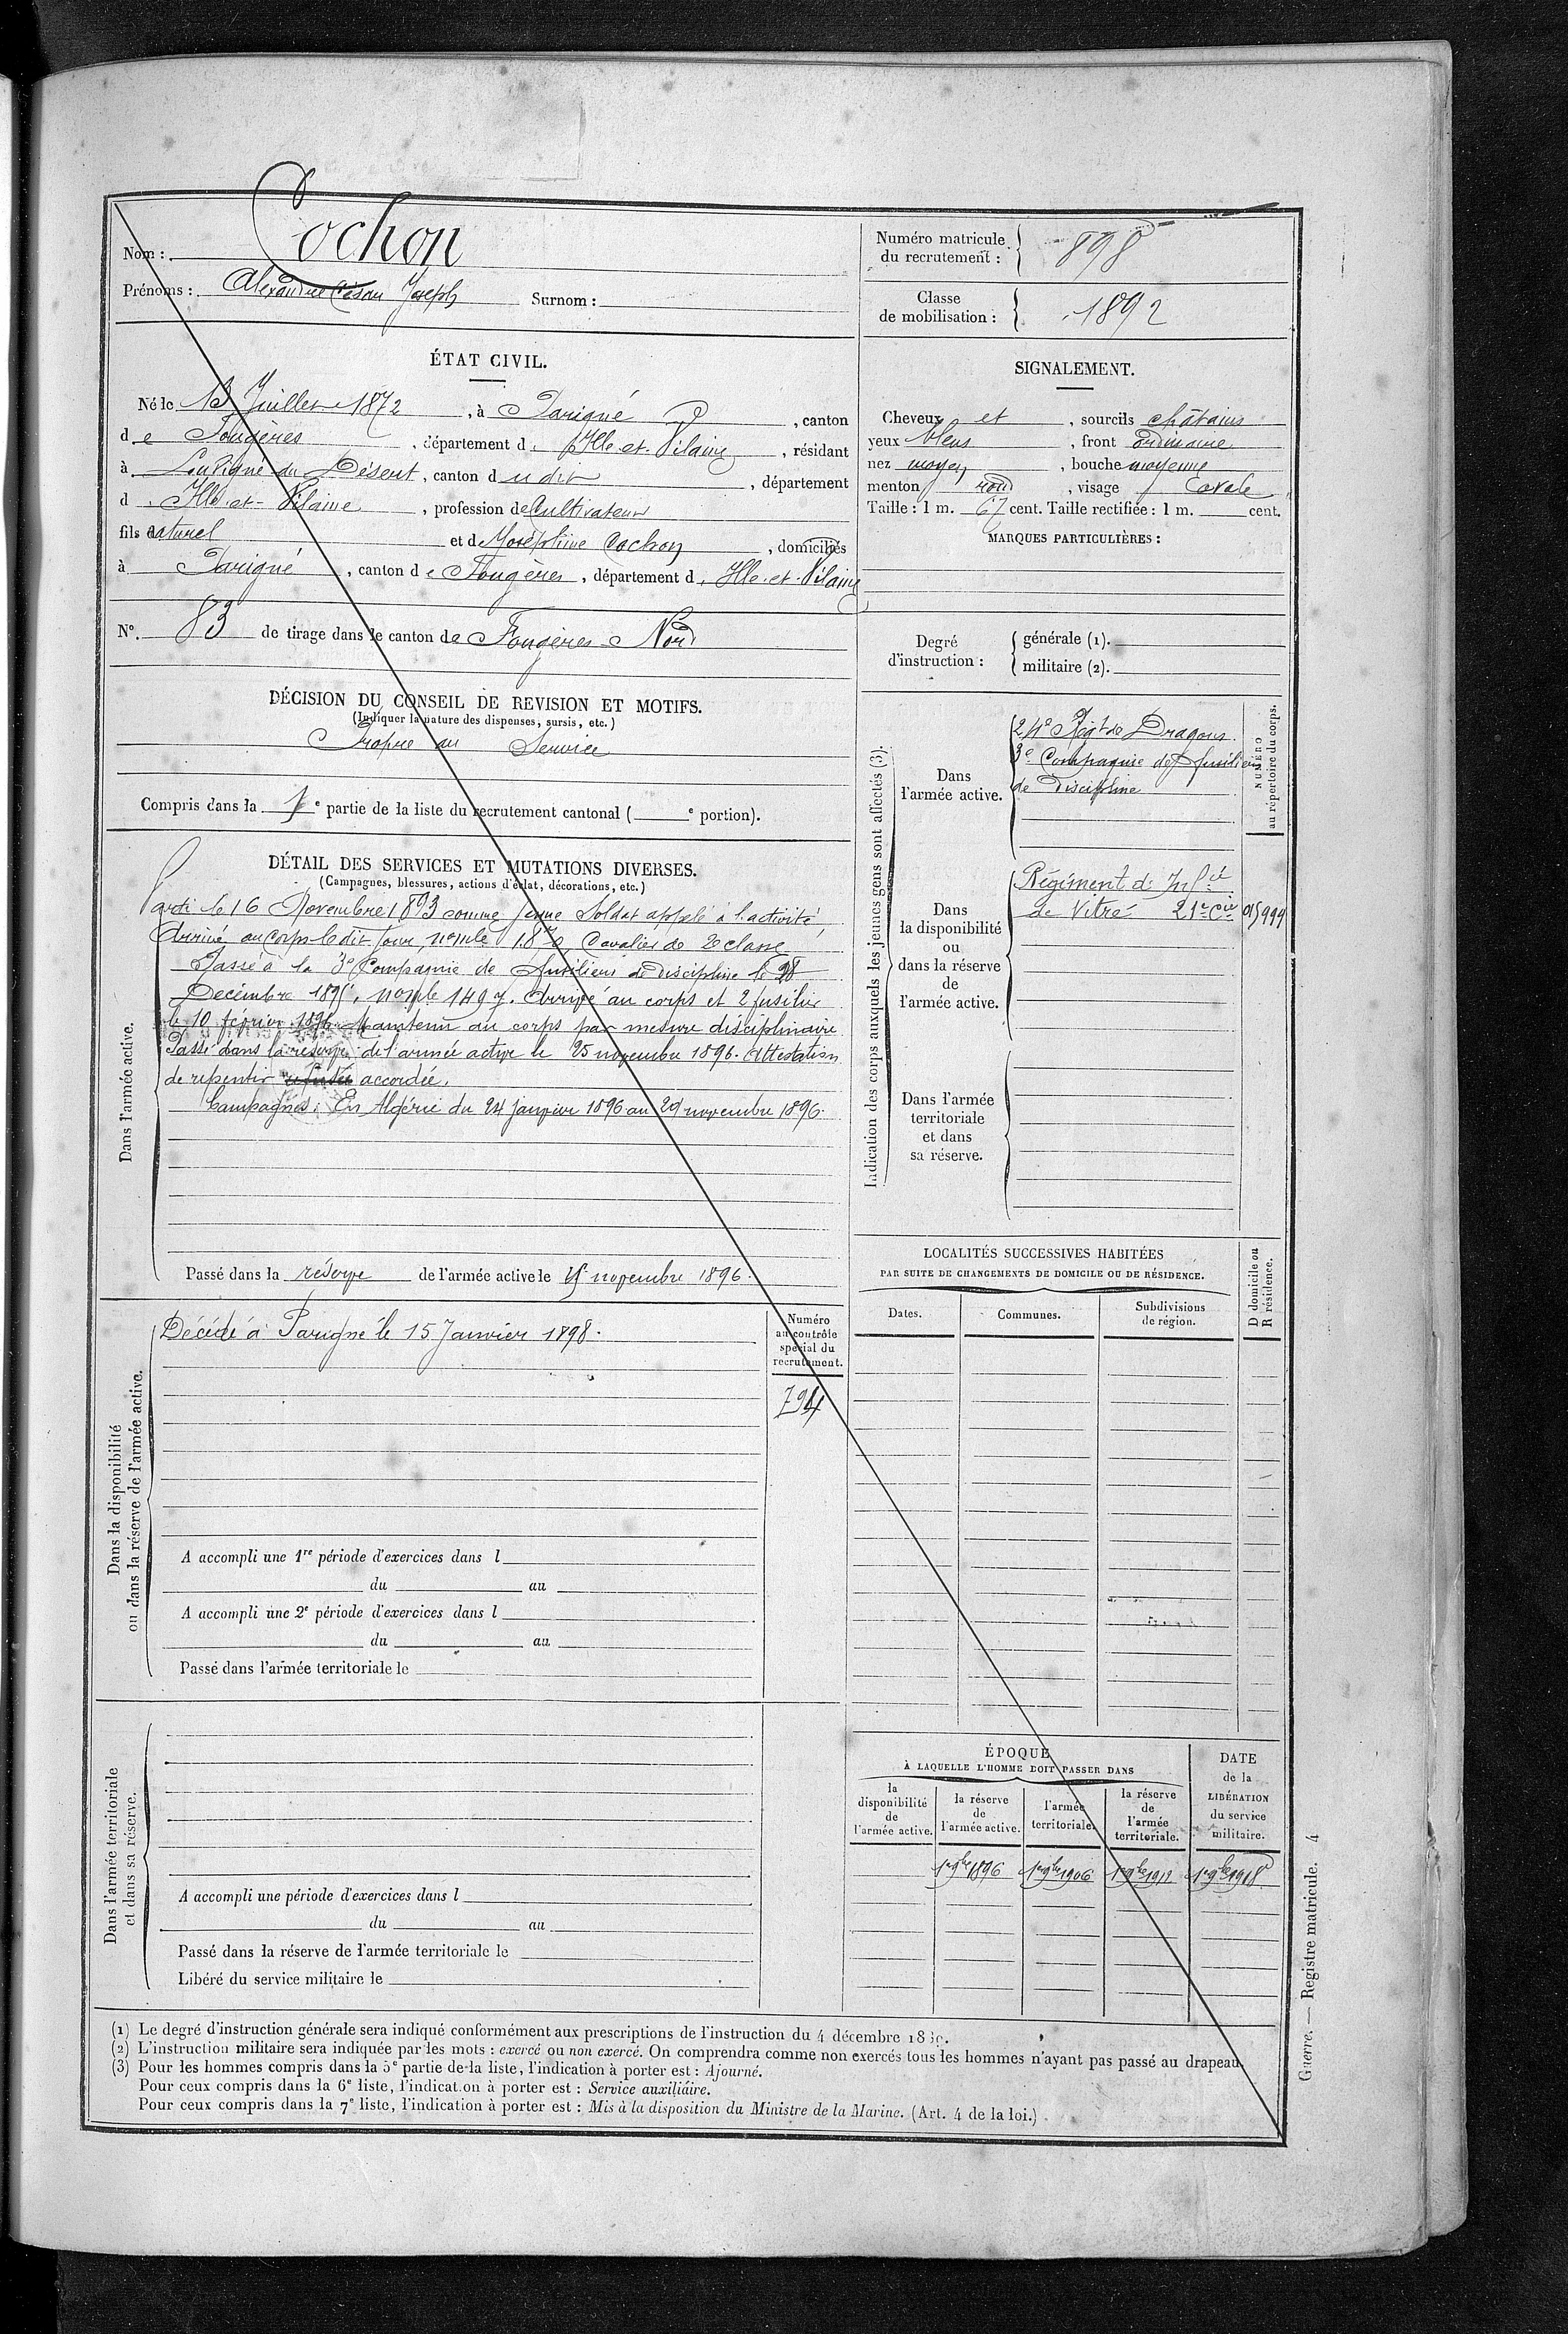 Nom : Cochon
Prénoms : Alexandre César Joseph Surnom :
ÉTAT CIVIL.
Né le 13 Juillet 1872, à Parigné, canton
de Fougères, département d. Ille-et-Vilaine, résidant
à Louvigné du Désert, canton d udit, département
d. Ille-et-Vilaine, profession de Cultivateur
fils naturel et de Joséphine Cochon, domiciliés
à Parigné, canton de Fougères, département d. Ille-et-Vilaine
N°. 83 de tirage dans le canton de Fougères-Nord
DÉCISION DU CONSEIL DE REVISION ET MOTIFS.
(Indiquer la nature des dispenses, sursis, etc.)
Propre au Service
Compris dans la 1e partie de la liste du recrutement cantonal (e portion).
DÉTAIL DES SERVICES ET MUTATIONS DIVERSES.
(Campagnes, blessures, actions d'éclat, décorations, etc.)
Dans l'armée active.
Parti le 16 Novembre 1893 comme jeune Soldat appelé à l'activité,
Arrivé au corps ledit jour, n° mle 1870, Cavalier de 2e classe
Passé à la 3e Compagnie de fusiliers de discipline le 28
Décembre 1895, n° mle 1497. Arrivé au corps et 2 fusilier
le 10 février 1896. Maintenu au corps par mesure disciplinaire
Passé dans la réserve de l'armée active le 25 novembre 1896. Attestation
de repentir refusée accordée.
Campagnes : En Algérie du 24 janvier 1896 au 29 novembre 1896.
Passé dans la réserve de l'armée active le novembre 1896.
Dans la disponibilité
ou dans la réserve de l'armée active.
Décédé à Parigné le 15 Janvier 1898.
Numéro
au contrôle
spécial du
recrutement.
794
A accompli une 1re période d'exercices dans l
du au
A accompli une 2e période d'exercices dans l
du au
Passé dans l'armée territoriale le
Dans l'armée territoriale
et dans sa réserve.
A accompli une période d'exercices dans l
du au
Passé dans la réserve de l'armée territoriale le
Libéré du service militaire le
Numéro matricule
du recrutement : 898
Classe
de mobilisation : 1892
SIGNALEMENT.
Cheveux et, sourcils châtains
yeux bleus, front ordinaire
nez moyen, bouche moyenne
menton rond, visage ovale
Taille : 1 m. 67 cent. Taille rectifiée : 1 m. cent.
MARQUES PARTICULIÈRES :
Degré
d'instruction :
générale (1).
militaire (2).
Indication des corps auxquels les jeunes gens sont affectés (3).
Dans
l'armée active.
24e Régt de Dragons.
3e Compagnie de fusiliers
de Discipline
NUMÉRO
au répertoire du corps.
Dans
la disponibilité
ou
dans la réserve
de
l'armée active.
Régiment d'Infie
de Vitré 21e Cie
015999
Dans l'armée
territoriale
et dans
sa réserve.
LOCALITÉS SUCCESSIVES HABITÉES
PAR SUITE DE CHANGEMENTS DE DOMICILE OU DE RÉSIDENCE.
Dates.
Communes.
Subdivisions
de région.
D domicile ou
R résidence.
ÉPOQUE
À LAQUELLE L'HOMME DOIT PASSER DANS
la
disponibilité
de
l'armée active.
la réserve
de
l'armée active.
l'armée
territoriale.
la réserve
de
l'armée
territoriale.
DATE
de la
LIBÉRATION
du service
militaire.
1er 9bre 1896 1er 9bre 1906 1er 9bre 1912 1er 9bre 1918
(1) Le degré d'instruction générale sera indiqué conformément aux prescriptions de l'instruction du 4 décembre
(2) L'instruction militaire sera indiquée par les mots : exercé ou non exercé. On comprendra comme non exercés tous les hommes n'ayant pas passé au drapeau.
(3) Pour les hommes compris dans la 5e partie de la liste, l'indication à porter est : Ajourné.
Pour ceux compris dans la 6e liste, l'indication à porter est : Service auxiliaire.
Pour ceux compris dans la 7e liste, l'indication à porter est : Mis à la disposition du Ministre de la Marine. (Art. 4 de la loi.)
Guerre. — Registre matricule. 4